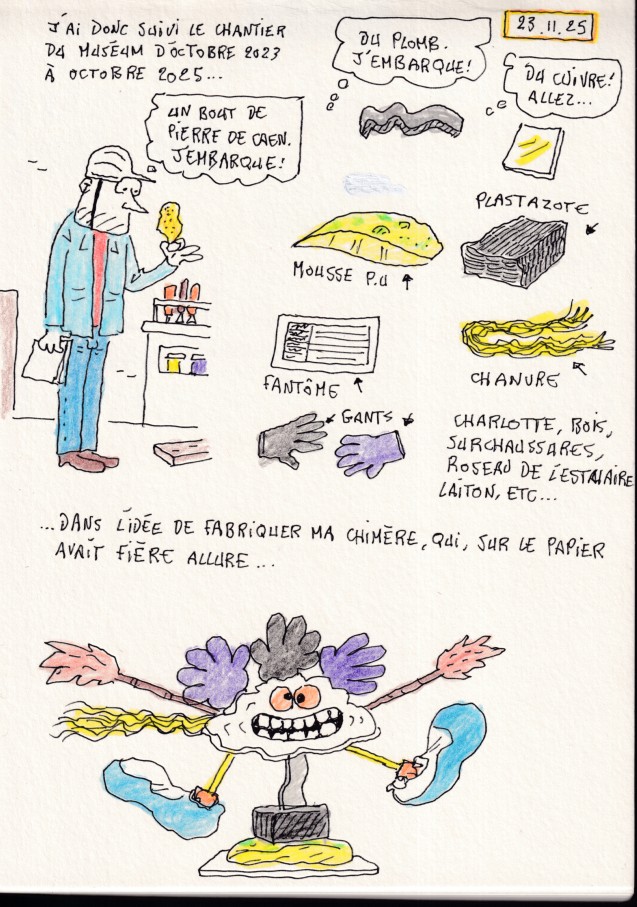 J'AI DONC SUIVI LE CHANTIER
DU MUSÉUM D'OCTOBRE 2023
À OCTOBRE 2025...
23.11.25
DU PLOMB.
J'EMBARQUE!
DU CUIVRE!
ALLEZ...
UN BOUT DE
PIERRE DE CAEN.
J'EMBARQUE!
PLASTAZOTE
MOUSSE P.U
FANTÔME
CHANVRE
GANTS
CHARLOTTE, BOIS,
SURCHAUSSURES,
ROSEAU DE L'ESTUAIRE
LAITON, ETC...
...DANS L'IDÉE DE FABRIQUER MA CHIMÈRE, QUI, SUR LE PAPIER
AVAIT FIÈRE ALLURE...